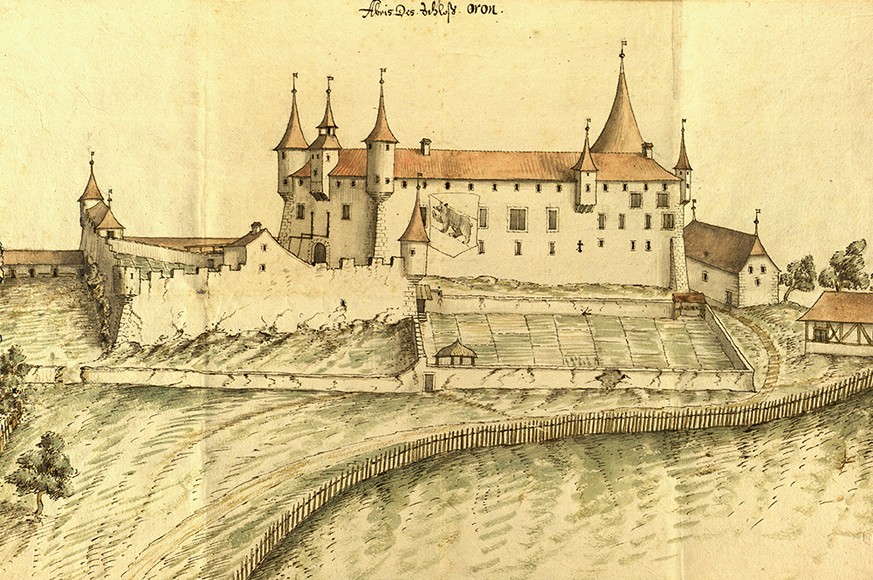 Abris Des Schloß Oron.